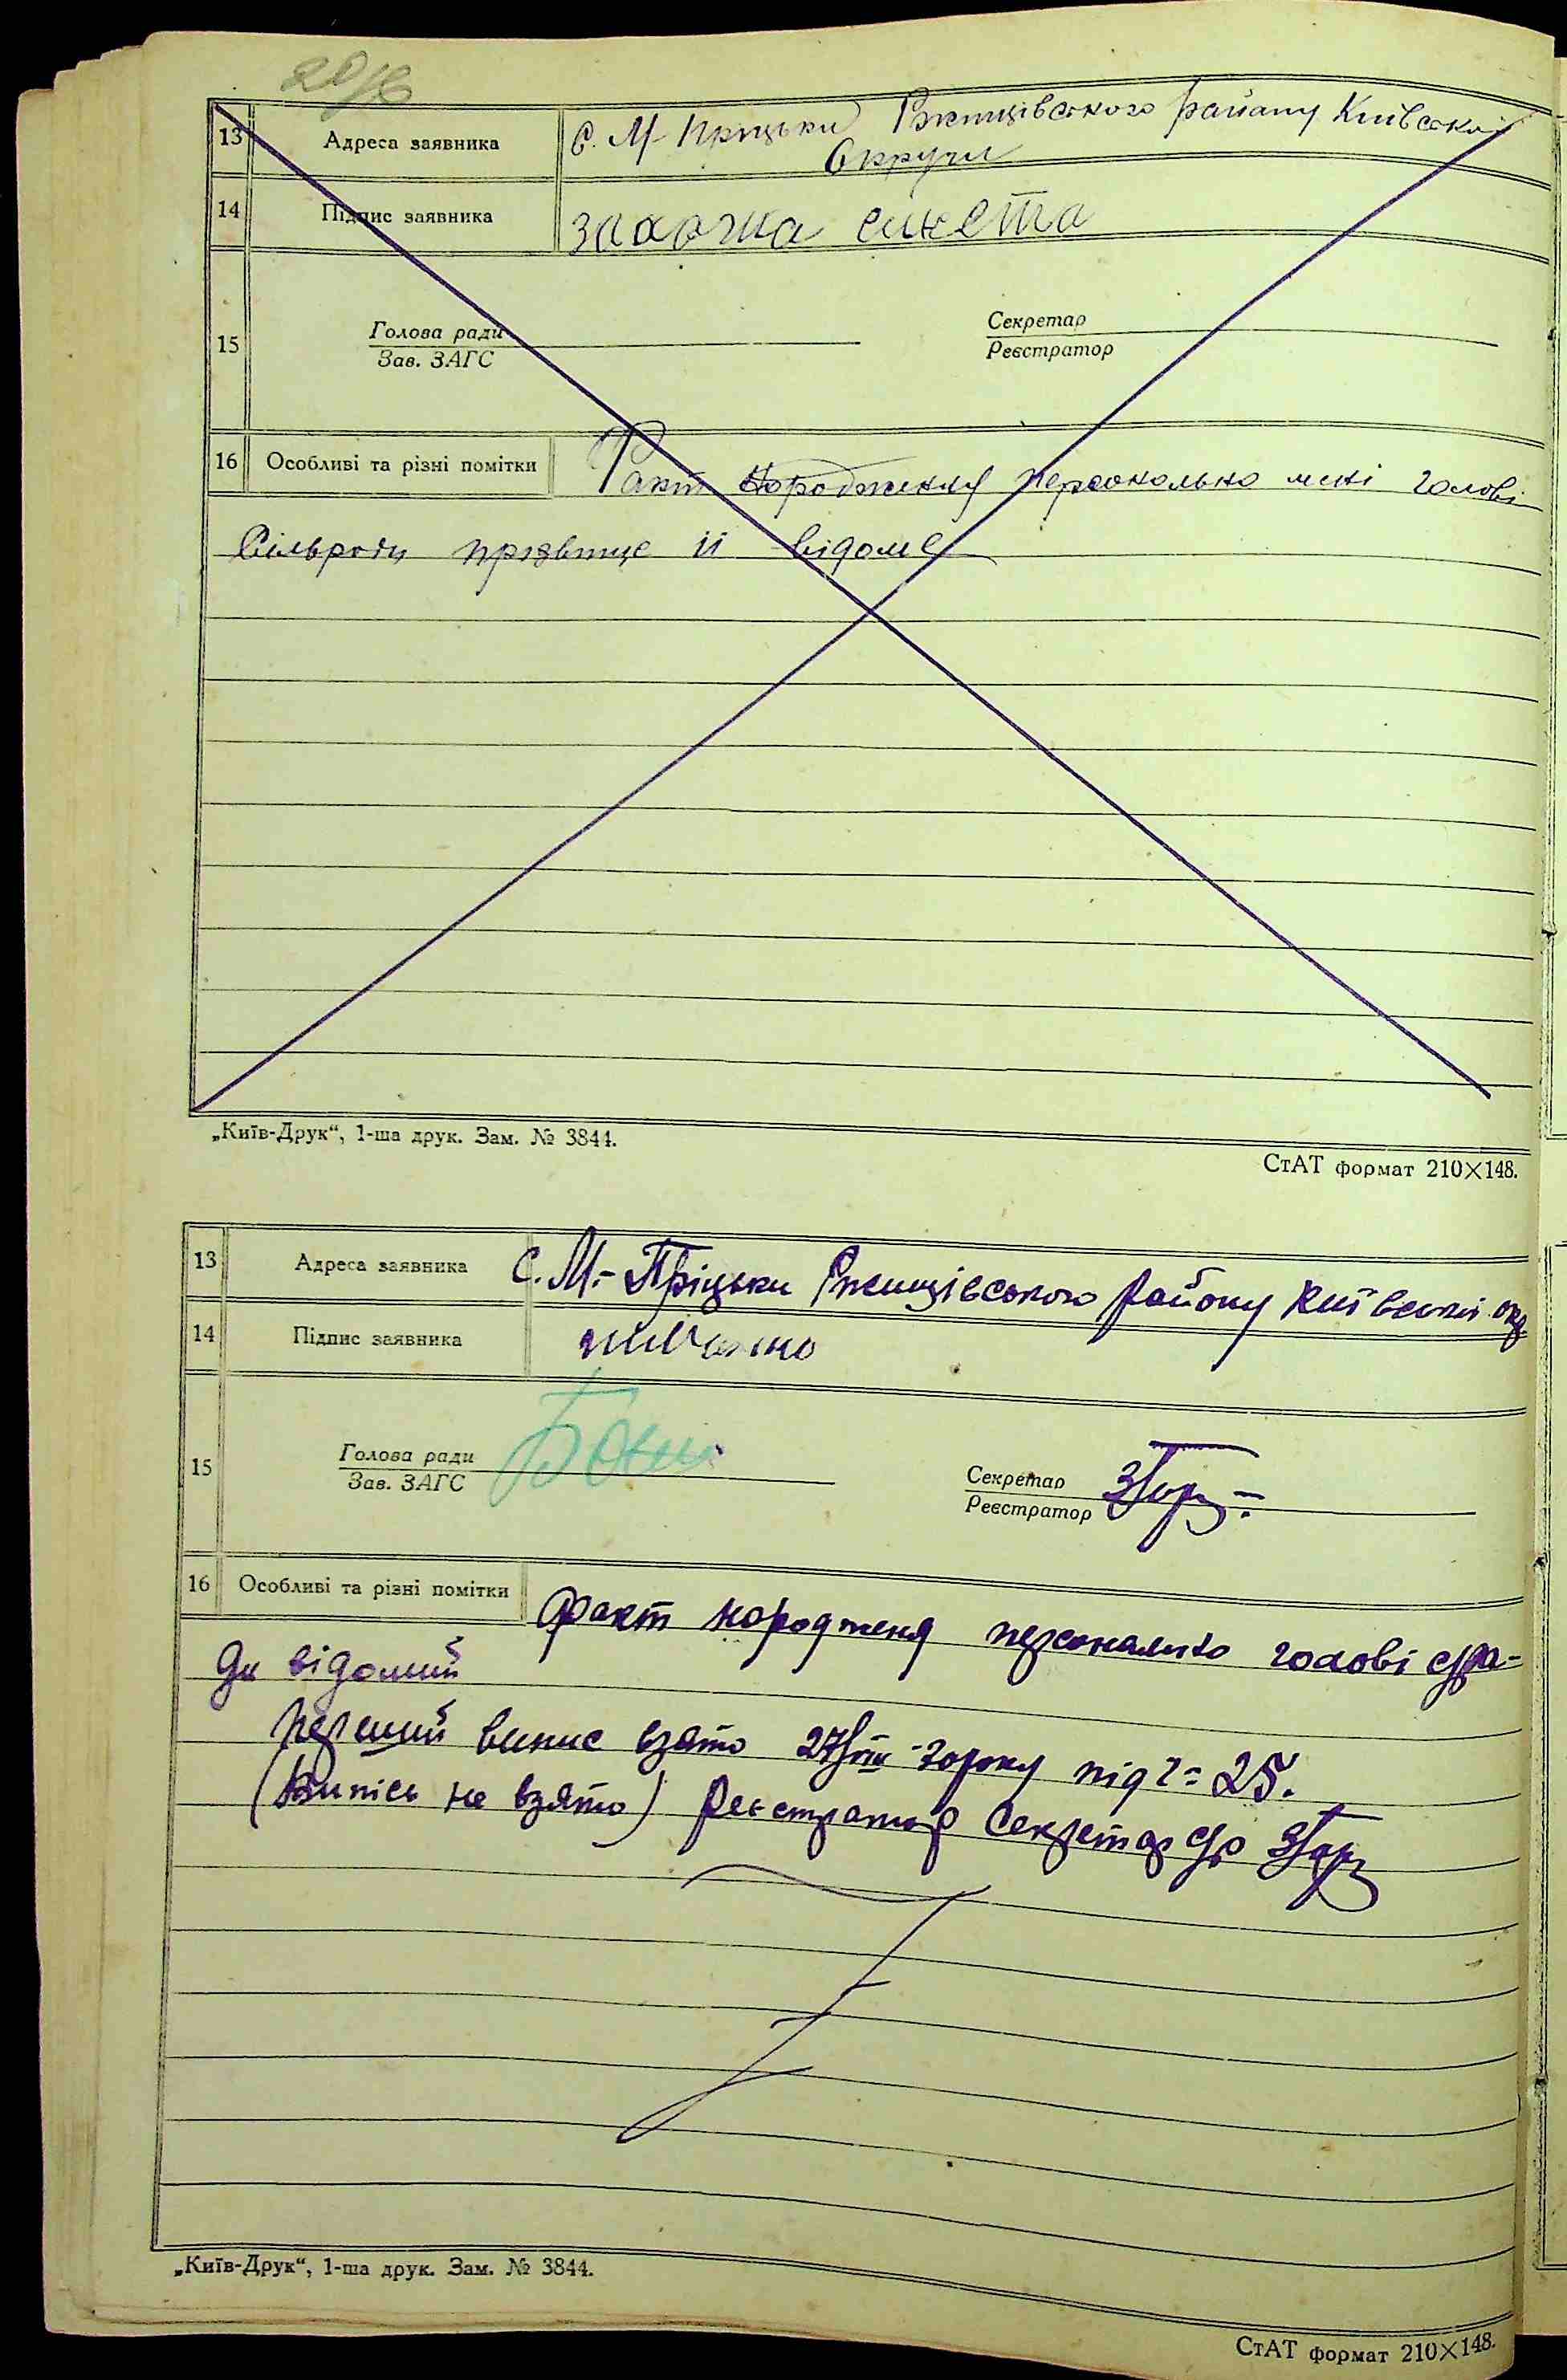 13 Адреса заявника С. М-Прицьки Ржищівського району Київської
Округи
14 Підпис заявника
15 Голова ради Секретар
Зав. ЗАГС Реєстратор
16 Особливі та різні помітки Факт народження персонально мені голові
Сільради прізвище її відоме
„Київ-Друк“, 1-ша друк. Зам. № 3844.
СтАТ формат 210×148.
13 Адреса заявника С. М.-Пріцьки Ржищівського району Київської окр.
14 Підпис заявника
15 Голова ради Секретар
Зав. ЗАГС Реєстратор
16 Особливі та різні помітки Факт народженя персонально голові с/ра-
ди відомий
Перший випис взято року під ч= 25.
(Випісь не взято) Реєстратор Секретар с/р
„Київ-Друк“, 1-ша друк. Зам. № 3844.
СтАТ формат 210×148.